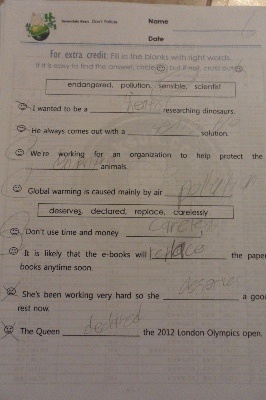 Name
Date
For extra credit: Fill in the blanks with right words.
If it is easy to find the answer, circle but if not, cross out
endangered, pollution, sensible, scientist
I wanted to be a researching dinosaurs.
He always comes out with a solution.
We're working for an organization to help protect the
animals.
Global warming is caused mainly by air pollution
deserves, declared, replace, carelessly
Don't use time and money
It is likely that the e-books will replace the paper
books anytime soon.
She's been working very hard so she a goo
rest now.
The Queen declared the 2012 London Olympics open.